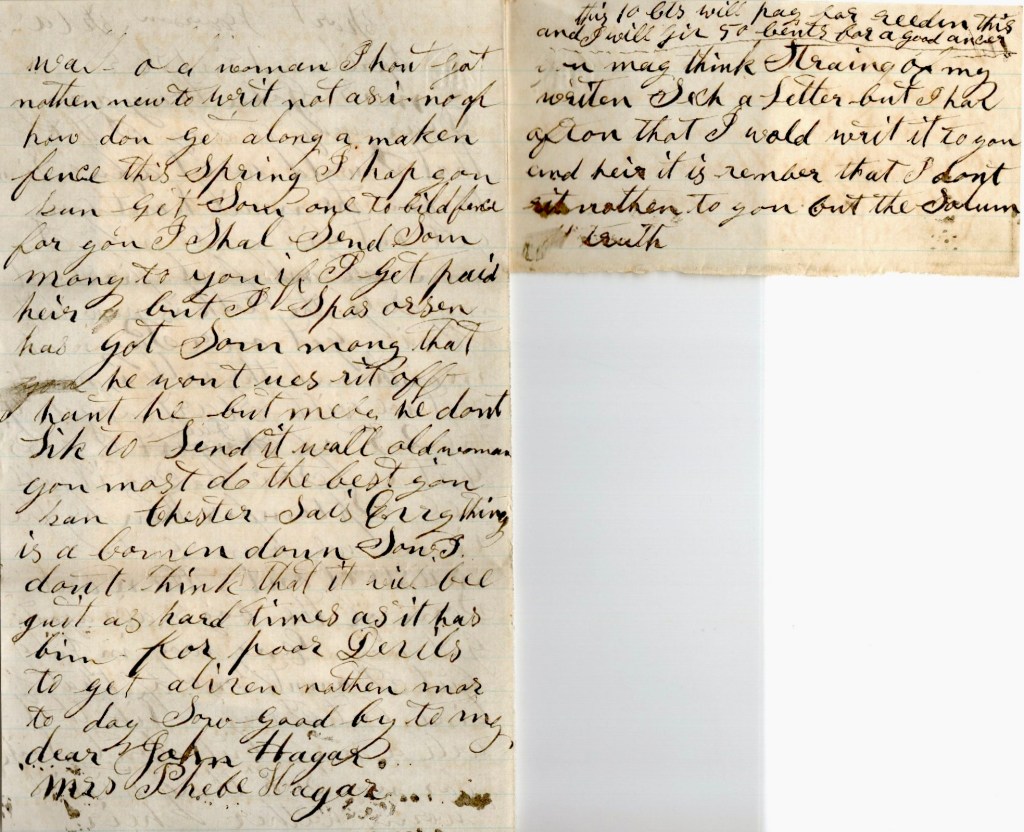 wall old woman I hout got
nothen new to writ not as i no of
how don get along a maken
fence this Spring I hap you
kan get Som one to bild fence
for you I Shal Send Som
mony to you if I get paid
heir but I Spos orsen
has got Som mony that
he wont ues rit off
hant he but mebe he dont
Lik to Send it wall old woman
you most do the best you
kan Chester Sais Evrything
is a bomen down Sow I
dont think that it will bee
quit as hard times as it has
bim for poor Devils
to get aliven nothen mor
to day Sow good by to my
dear John Hagar
Mrs Phebe Hagar
this 10 cts will pay for reeden this
and I will giv 50 cents for a good ancer
you may think Straing of my
writen Sich a Letter but I hav
ofton that I wold writ it to you
and heir it is rember that I dont
rit nothen to you but the Solum
truth